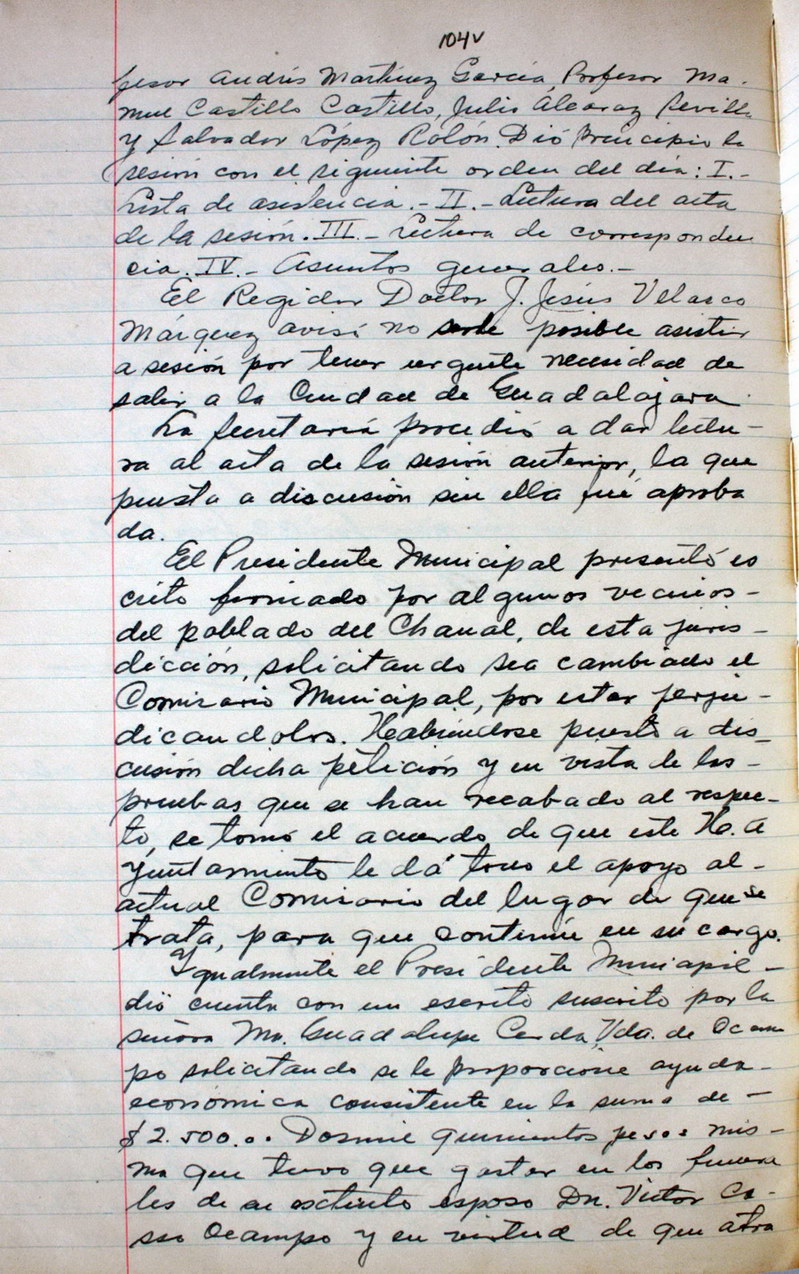 104v
fesor Andrés Martínez García, Profesor Ma-
nuel Castillo Castillo, Julio Álcaraz Sevilla
y Salvador López Rolón. Dió principio la
sesión con el siguiente orden del día: I.-
Lista de asistencia.- II.- Lectura del acta
de la sesión. III.- Lectura de corresponden
cia. IV.- Asuntos generales.-
El Regidor Doctor J. Jesús Velasco
Márquez avisó no serle posible asistir
a sesión por tener urgente necesidad de
salir a la Ciudad de Guadalajara.
La Secretaría procedió a dar lectu-
ra al acta de la sesión anterior, la que
puesta a discusión sin ella fué aproba
da.
El Presidente Municipal presentó es
crito firmado por algunos vecinos-
del poblado del Chanal, de esta juris-
dicción, solicitando sea cambiado el
Comisario Municipal, por estar perju-
dicandolos. Habiéndose puesto a dis_
cusión dicha petición y en vista de las-
pruebas que se han recabado al respec-
to, se tomó el acuerdo de que este H. A
yuntamiento le dá todo el apoyo al-
actual Comisario del lugar de que se
trata, para que continúe en su cargo.
Igualmente el Presidente Municipal-
dió cuenta con un escrito suscrito por la
señora Ma. Guadalupe Cerda Vda. de Ocam
po solicitando se le proporcione ayuda-
económica consistente en la suma de-
$2.500.00 Dosmil quinientos pesos mis-
ma que tuvo que gastar en los funera
les de su extinto esposo Dn. Victor Ca-
sso Ocampo y en virtud de que atra